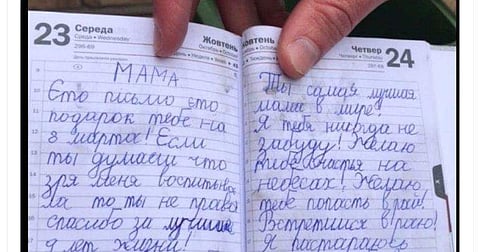 23 Середа
Середа • Wednesday
Жовтень
295-69
МАМА
Єто письмо єто
подарок тебе на
8 марта! Если
ты думаеш что
зря меня воспитыва
ла то ты не права
спасибо за лучшие
9 лет жизни!
Жовтень
Четвер
24
Ты самая лучшая
мама в мире!
Я тебя никогда не
забуду! Желаю
тебе счастья на
небесах! Желаю
тебе попасть в рай!
Встретимся в раю!
Я постараюсь